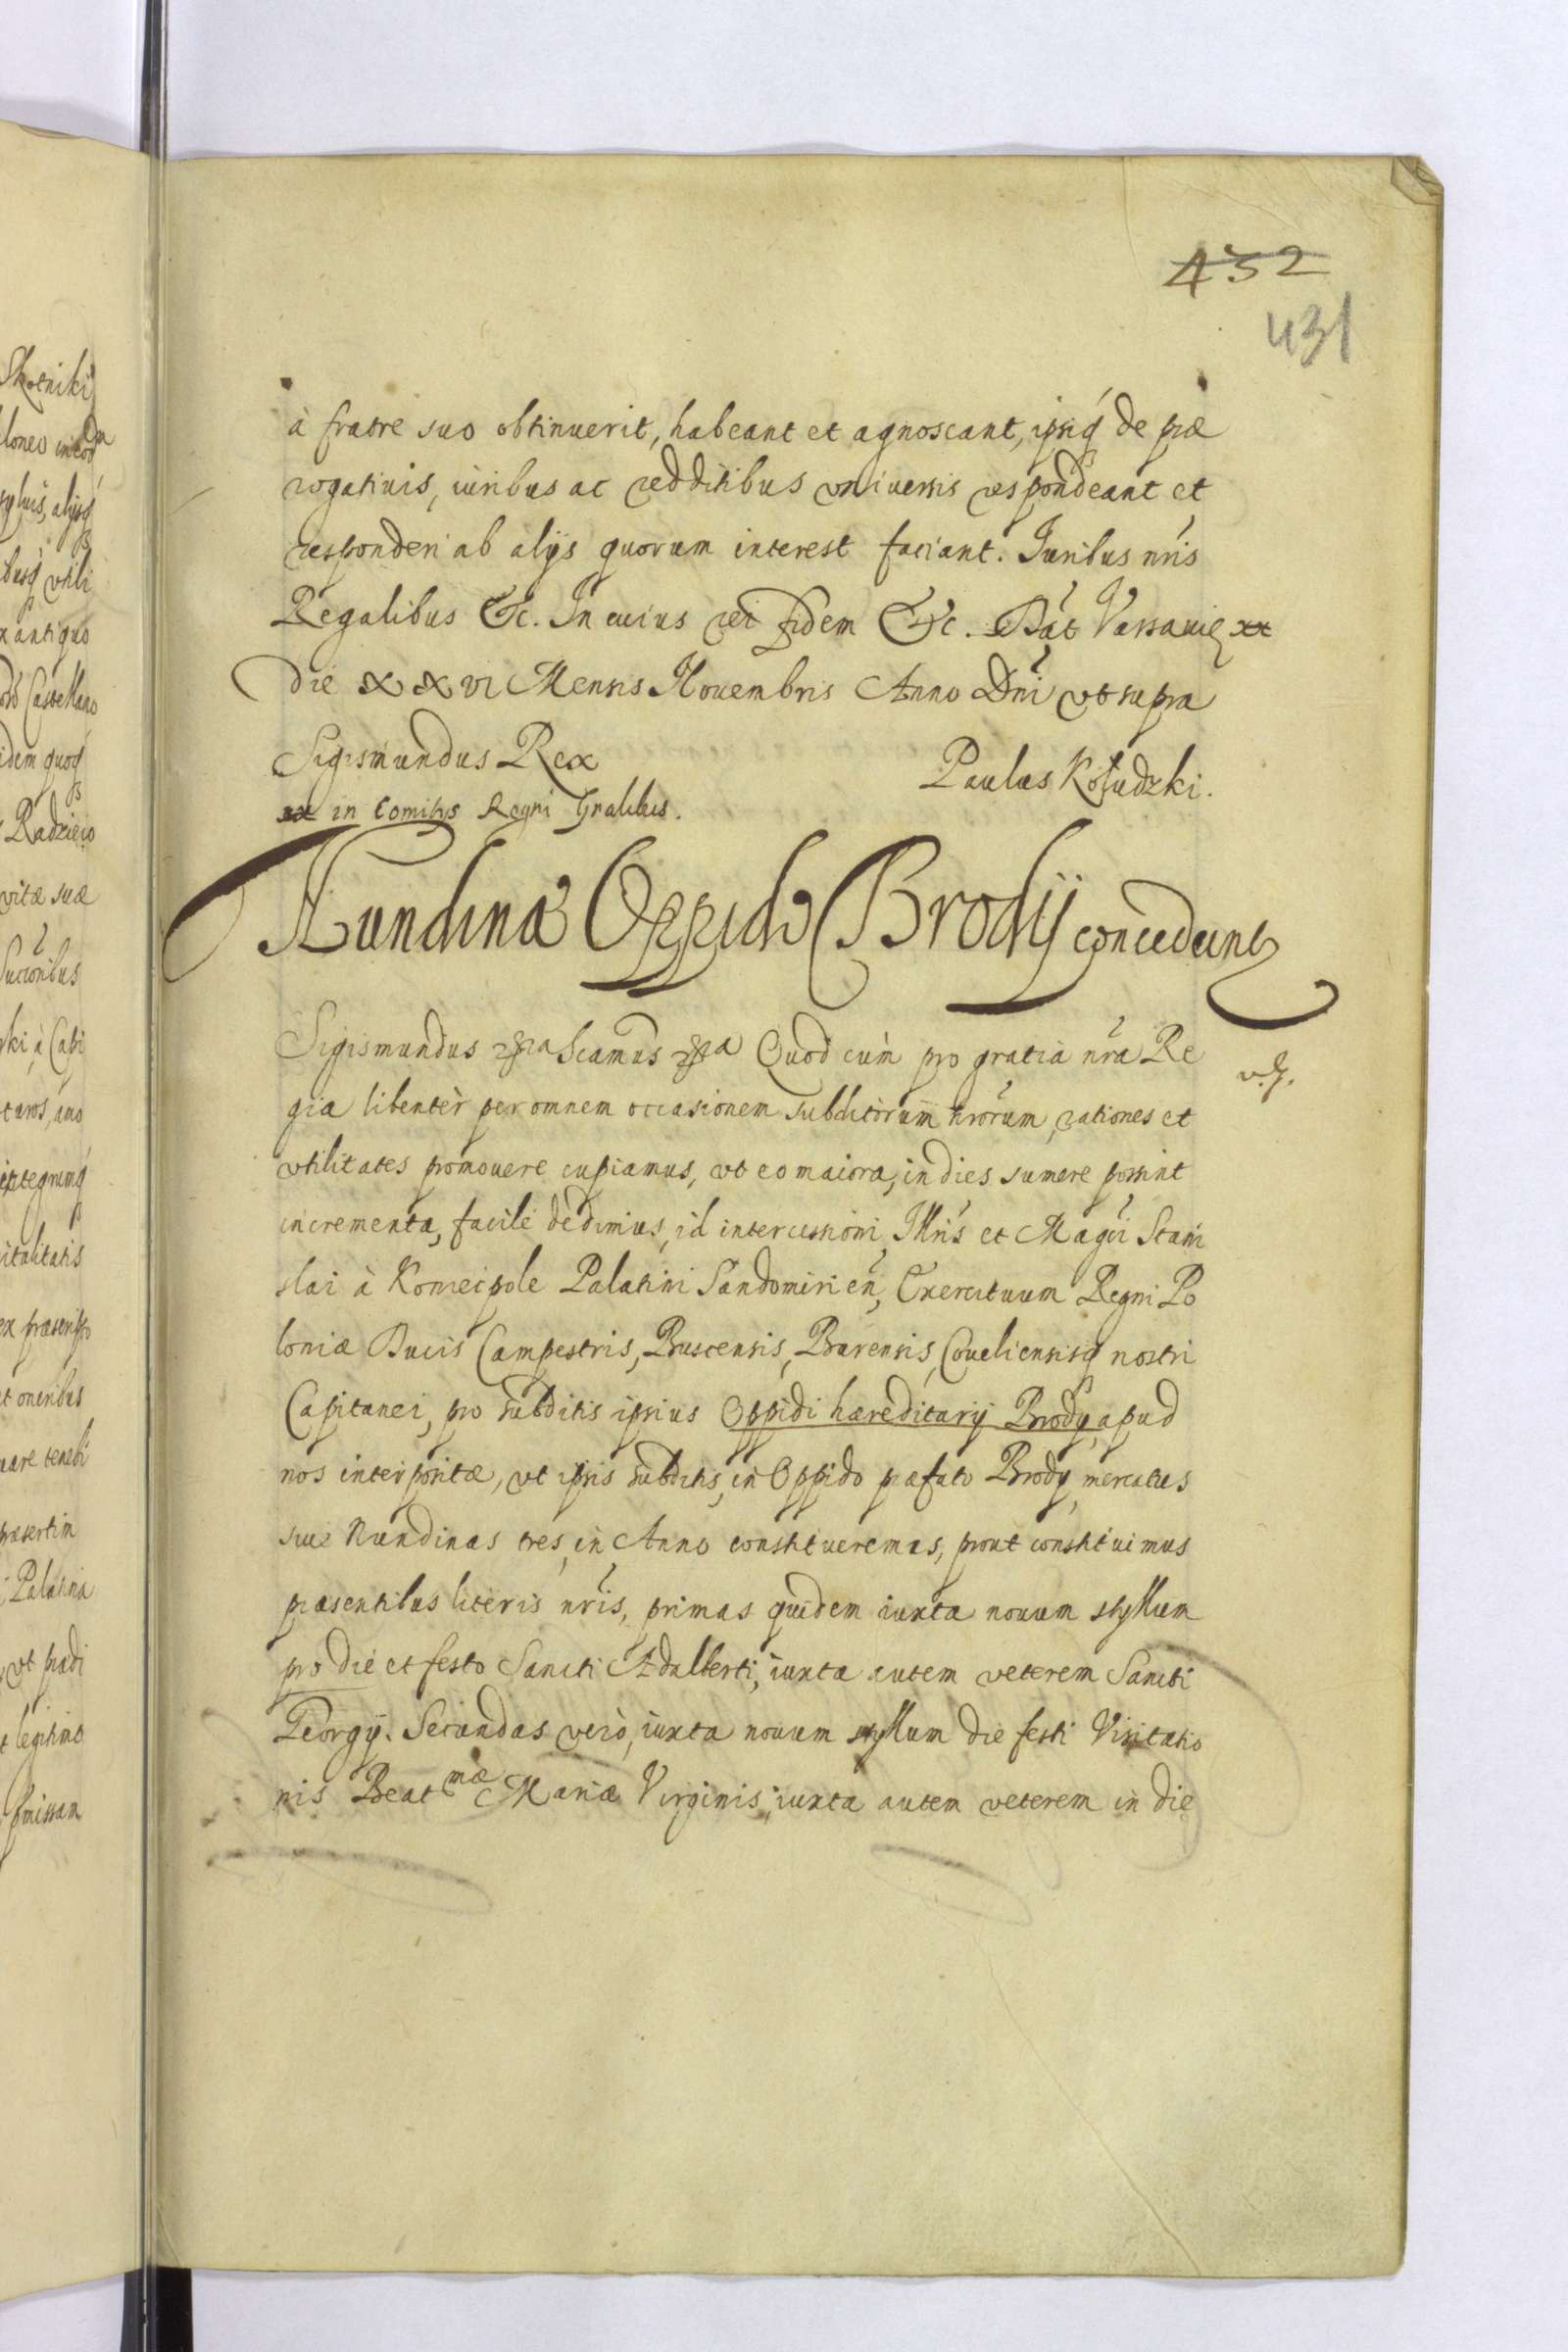 432
431
à fratre suo obtinuerit, habeant et agnoscant, ipsiq́ de præ
rogatiuis, iuribus ac redditibus vniuersis respondeant et
responderi ab alijs quorum interest faciant. Iuribus nris
Regalibus &c. In cuius rei fidem &c. Dat Varsauię
die XXVI Mensis Nouembris Anno Dni vt supra
Sigismundus Rex
Paulus Kołudzki.
in Comitijs Regni Gralibus.
Nundinæ Oppido Brodij conceduntr
Sigismundus Scamus Quod cum pro gratia nra Re
v. g.
gia libentèr per omnem occasionem subditorum nrorum, rationes et
vtilitates promouere cupiamus, vt eo maiora, in dies sumere possint
incrementa, facilè dedimus, id intercessioni, Illris et Magci Stani
slai à Koniecpole Palatini Sandomirien, Exercituum Regni Po
loniæ Ducis Campestris, Buscensis, Barensis, Coueliensisq́ nostri
Capitanei, pro subditis ipsius Oppidi hæreditarij Brody, apud
nos interpositæ, vt ipsis subditis, in Oppido præfato Brody, mercatus
siue Nundinas tres, in Anno constitueremus, prout constituimus
præsentibus literis nris, primas quidem iuxta nouum styllum
pro die et festo Sancti Adalberti, iuxta autem veterem Sancti
Georgij. Secundas verò, iuxta nouum styllum die festi Visitatio
nis Beatmæ Mariæ Virginis, iuxta autem veterem in die